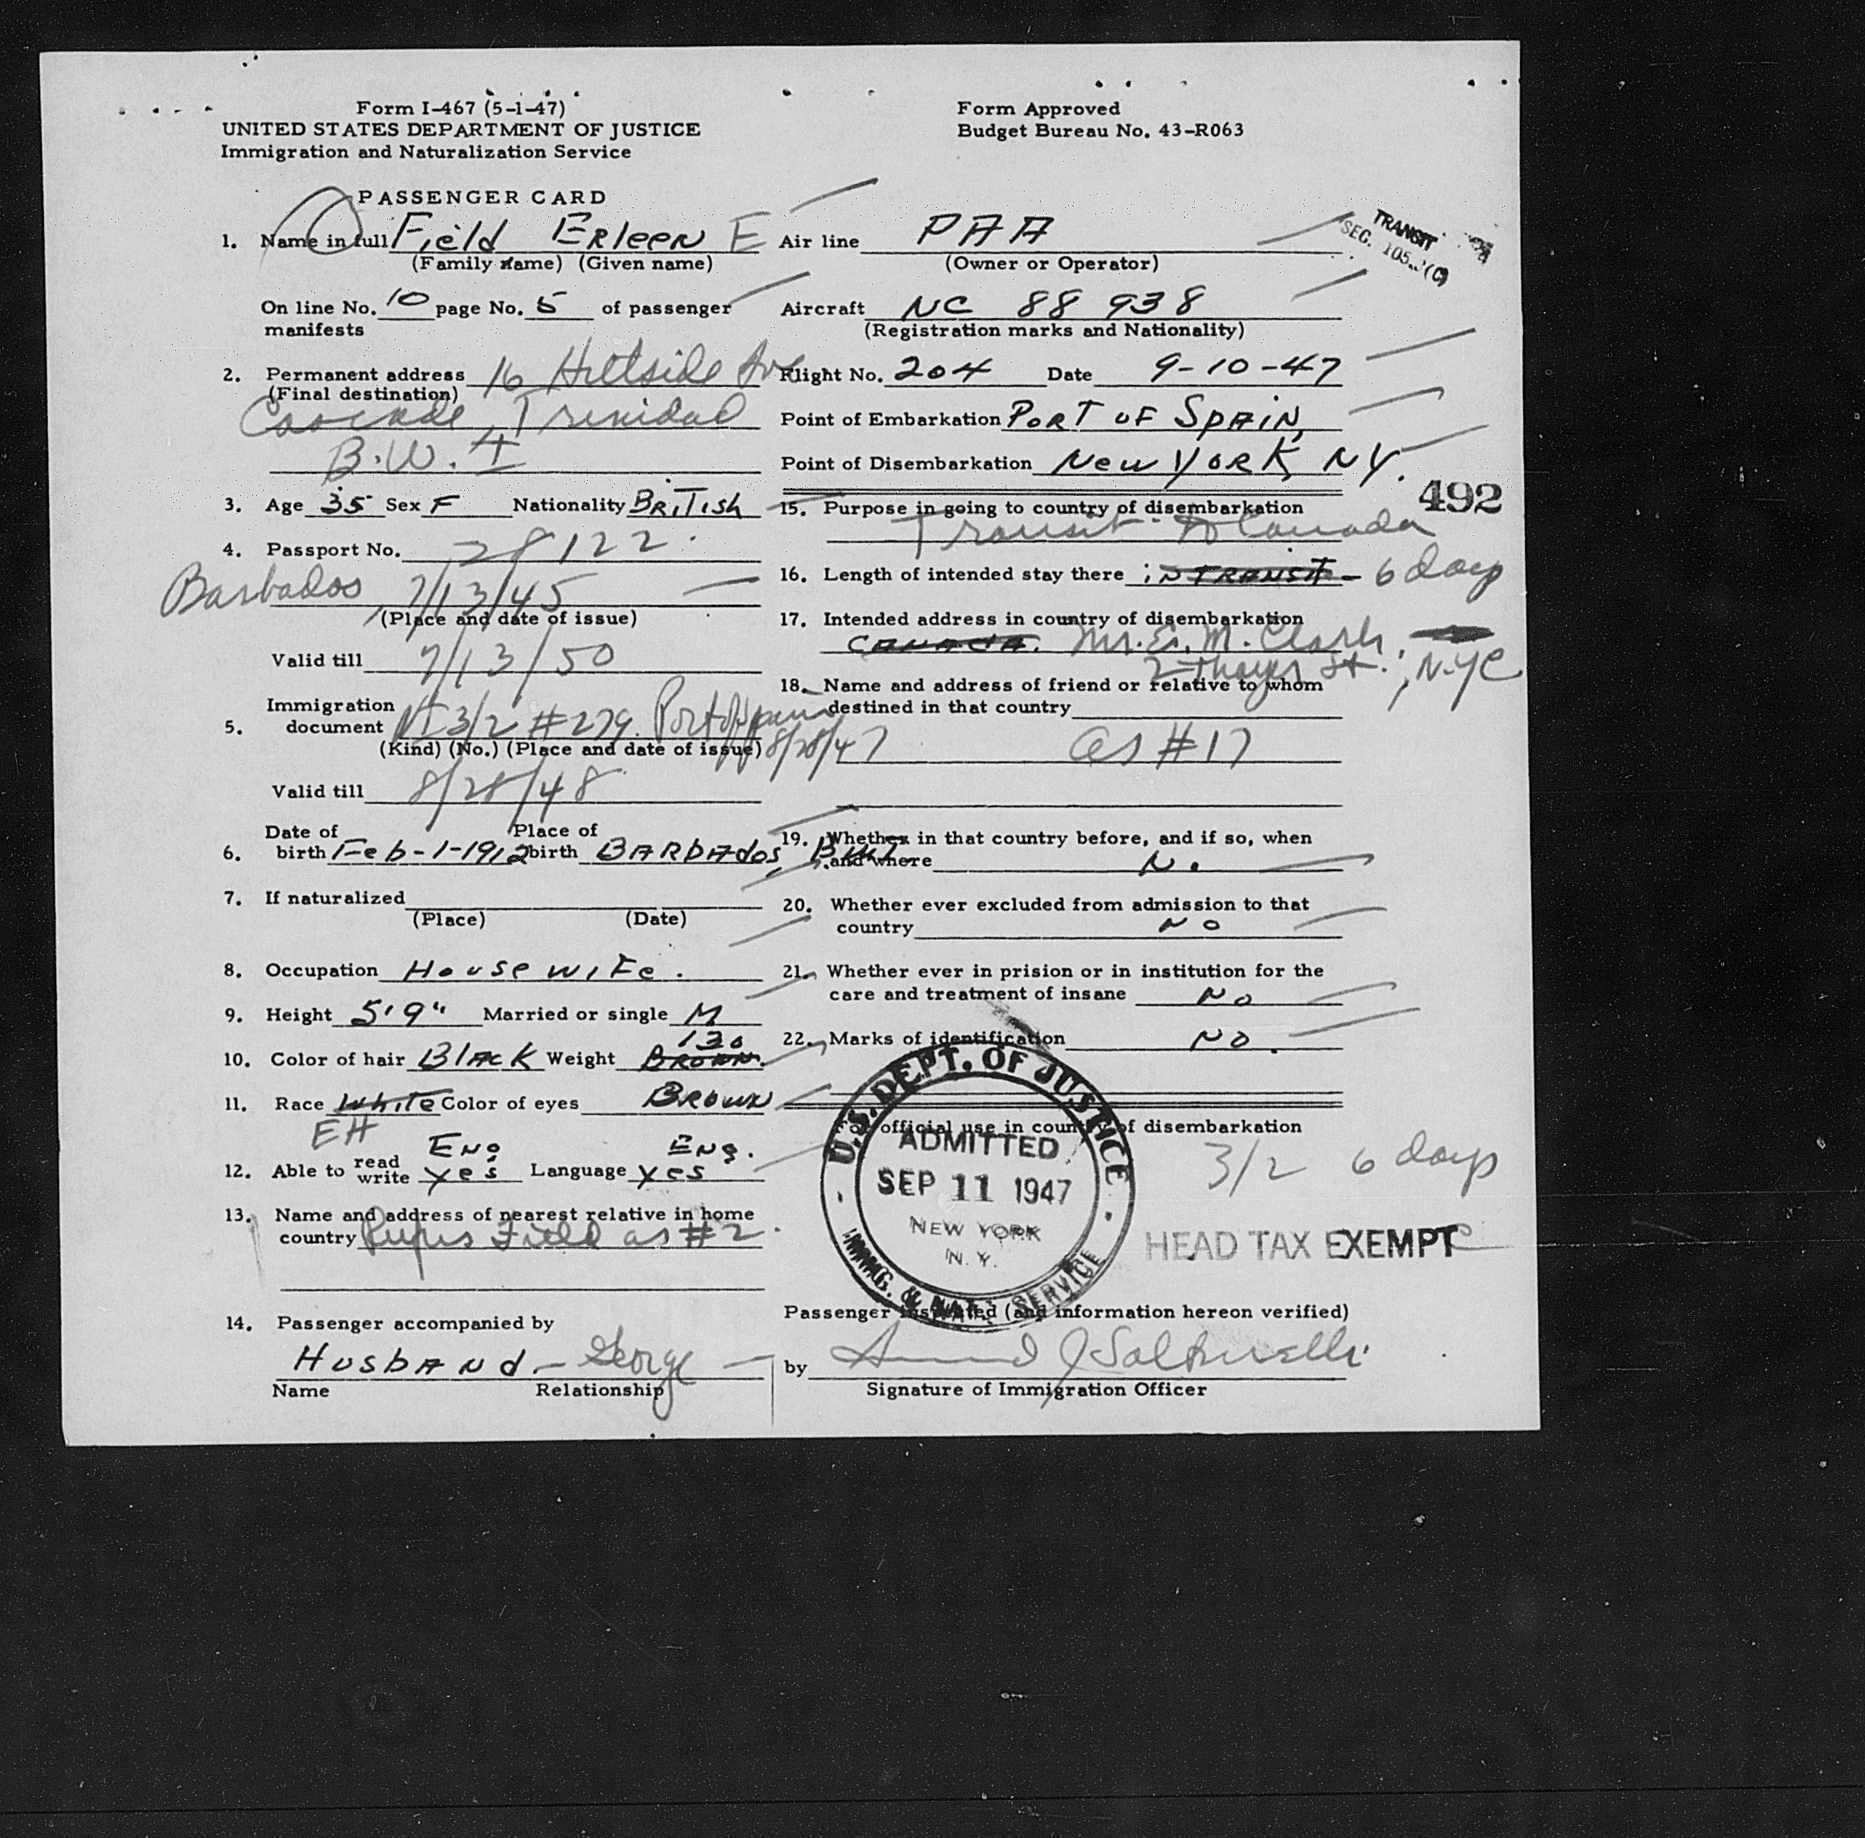 Form I-467 (5-1-47)
UNITED STATES DEPARTMENT OF JUSTICE
Immigration and Naturalization Service
Form Approved
Budget Bureau No. 43-R063
PASSENGER CARD
1. Name in full Field Erleen E
(Family name) (Given name)
On line No. 10 page No. 5 of passenger
manifests
2. Permanent address 16 Hillside Ave
(Final destination)
Cascade, Trinidad
B.W.I
3. Age 35 Sex F Nationality British
4. Passport No. 28122
Barbados, 7/13/45
(Place and date of issue)
Valid till 7/13/50
Immigration
5. document 3/2 #279. Port of Spain 8/28/47
(Kind) (No.) (Place and date of issue)
Valid till 8/28/48
Date of Place of
6. birth Feb-1-1912 birth BARBADOS, B.W.I.
7. If naturalized
(Place) (Date)
8. Occupation Housewife.
9. Height 5'9" Married or single M
130
10. Color of hair Black Weight Brown.
11. Race White Color of eyes Brown
EH
Eng Eng.
12. Able to read write yes Language yes
13. Name and address of nearest relative in home
country Rufus Field as #2.
14. Passenger accompanied by
Husband - George
Name Relationship
Air line PAA
(Owner or Operator)
TRANSIT
SEC. 105. (C)
Aircraft NC 88 938
(Registration marks and Nationality)
Flight No. 204 Date 9-10-47
Point of Embarkation PORT OF SPAIN,
Point of Disembarkation New York NY.
492
15. Purpose in going to country of disembarkation
Transit to Canada
16. Length of intended stay there in transit - 6 days
17. Intended address in country of disembarkation
CANADA. Mr. E. M. Clark,
2 Thayer St., NYC
18. Name and address of friend or relative to whom
destined in that country
as #17
19. Whether in that country before, and if so, when
and where No
20. Whether ever excluded from admission to that
country NO
21. Whether ever in prision or in institution for the
care and treatment of insane NO
22. Marks of identification NO.
For official use in country of disembarkation
3/2 6 days
U.S. DEPT. OF JUSTICE
ADMITTED
SEP 11 1947
NEW YORK
N. Y.
IMMIG. & NAT. SERVICE
HEAD TAX EXEMPT
Passenger inspected (and information hereon verified)
by
Signature of Immigration Officer